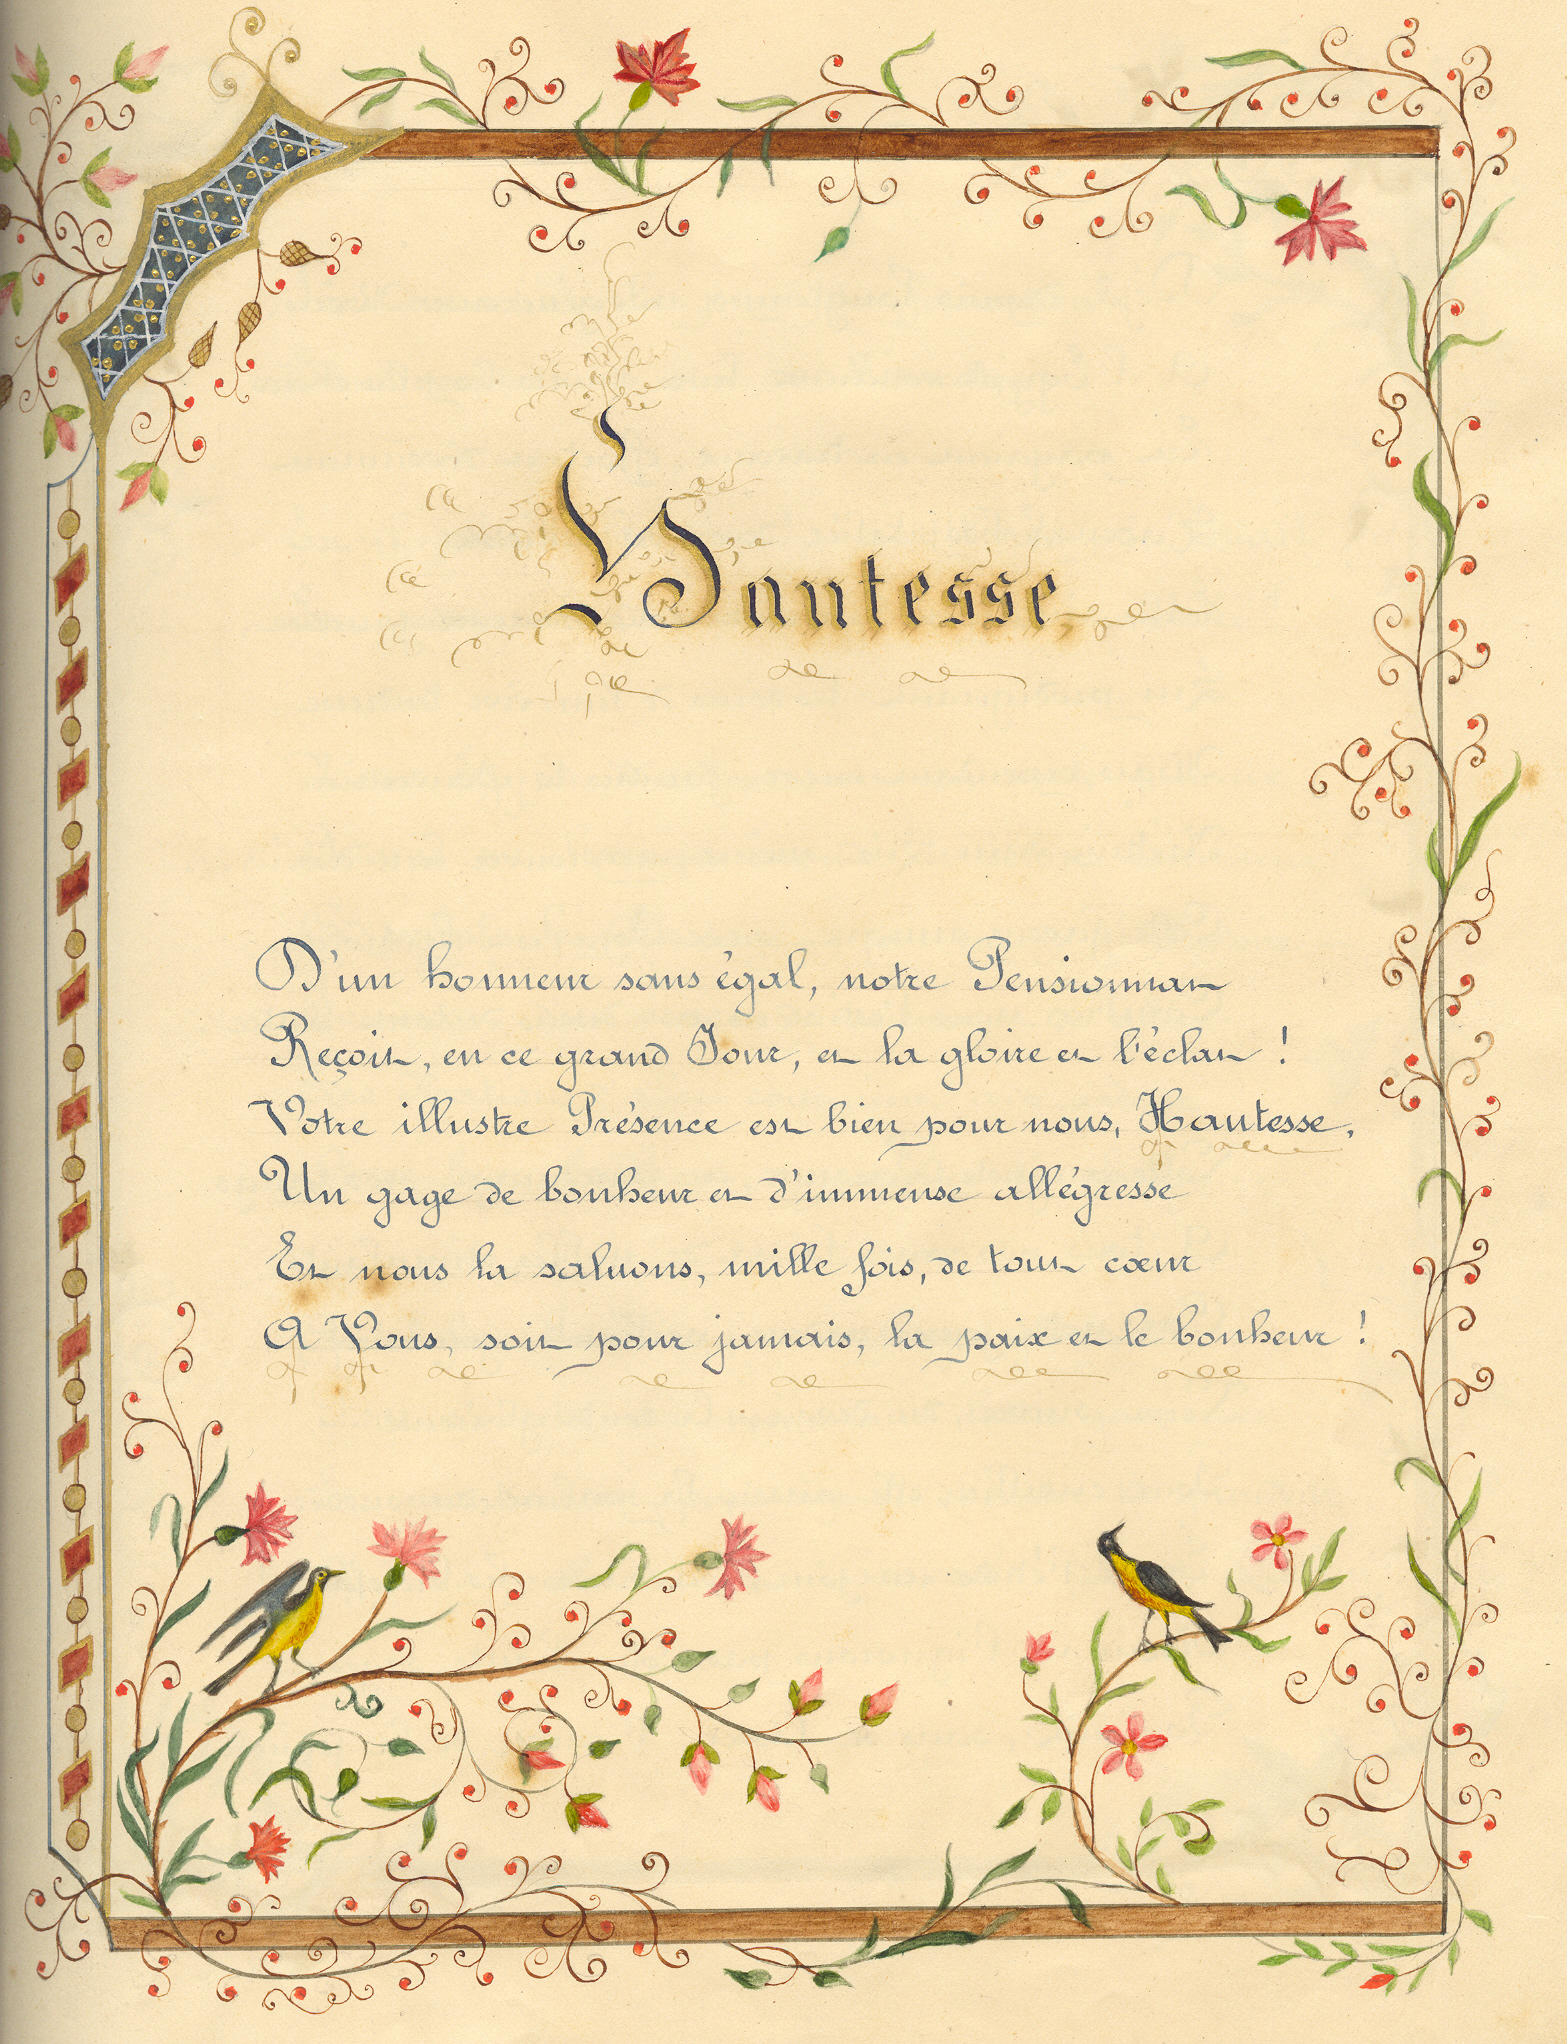 Hautesse
D'un honneur sans égal, notre Pensionnat
Reçoit, en ce grand Jour, et la gloire et l'éclat !
Votre illustre Présence est bien pour nous, Hautesse,
Un gage de bonheur et d'immense allégresse
Et nous la saluons, mille fois, de tout cœur
A Vous, soit pour jamais, la paix et le bonheur !